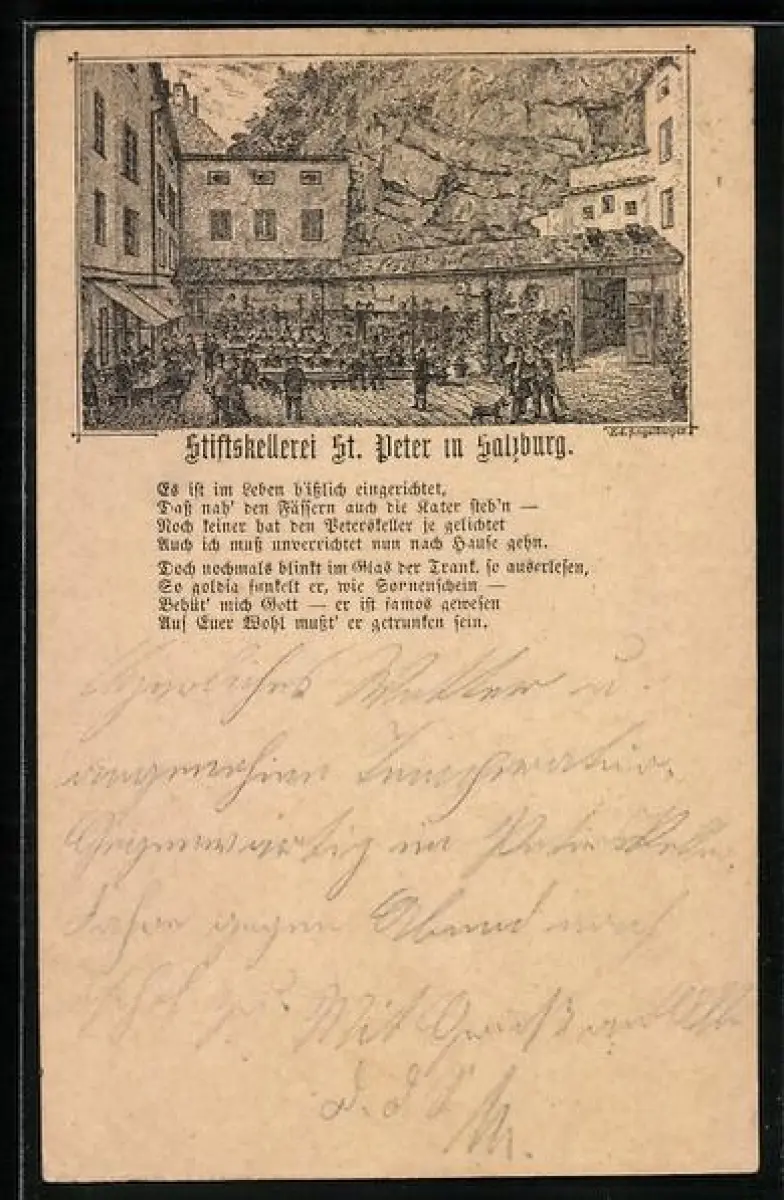 Stiftskellerei St. Peter in Salzburg.
Es ist im Leben häßlich eingerichtet,
Daß nah' den Fässern auch die Kater steh'n —
Noch keiner hat den Peterskeller je gelichtet
Auch ich muß unverrichtet nun nach Hause gehn.
Doch nochmals blinkt im Glas der Trank, so auserlesen,
So goldig funkelt er, wie Sonnenschein —
Behüt' mich Gott — er ist famos gewesen
Auf Euer Wohl mußt' er getrunken sein.
Herrliches Wetter u.
angenehme Temperatur.
Gegenwärtig im Peterskeller.
Fahre gegen Abend nach
Mit Gruß an Alle